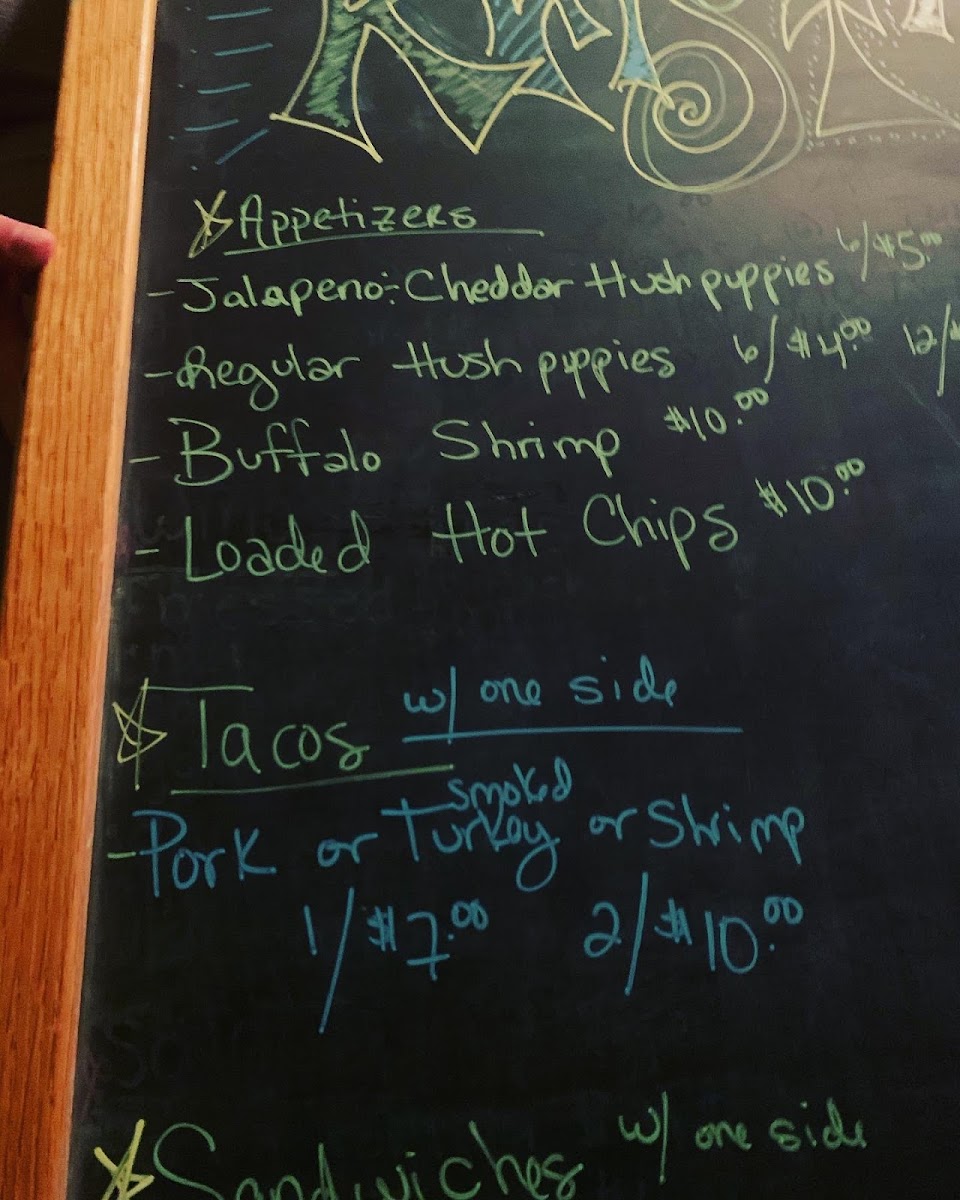 Appetizers
- Jalapeno-Cheddar Hushpuppies 6/$5.00
- Regular Hushpuppies 6/$4.00 12/
- Buffalo Shrimp $10.00
- Loaded Hot Chips $10.00
Tacos w/ one side
- Pork or Smoked Turkey or Shrimp
1/$7.00 2/$10.00
Sandwiches w/ one side